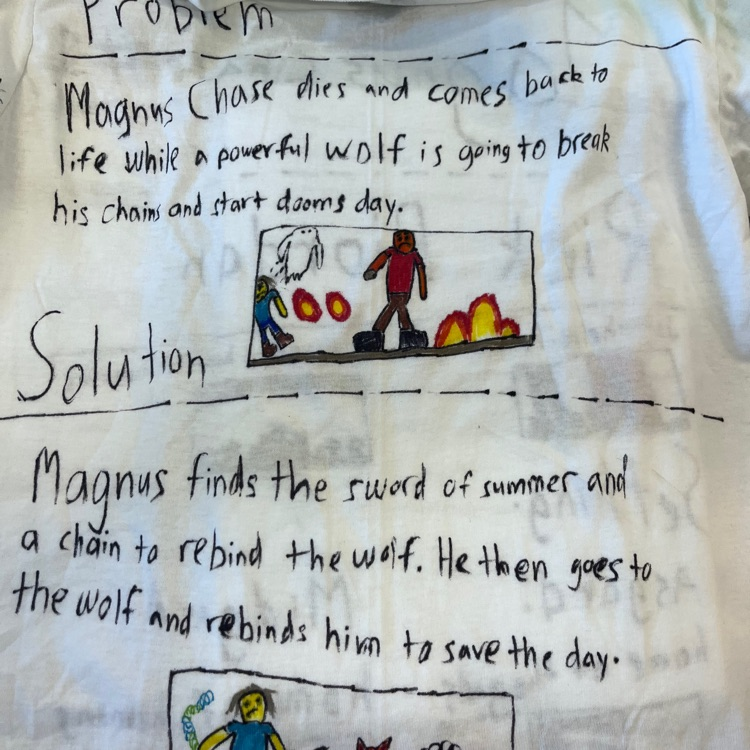 Problem
Magnus Chase dies and comes back to
life while a powerful wolf is going to break
his chains and start dooms day.
Solution
Magnus finds the sword of summer and
a chain to rebind the wolf. He then goes to
the wolf and rebinds him to save the day.